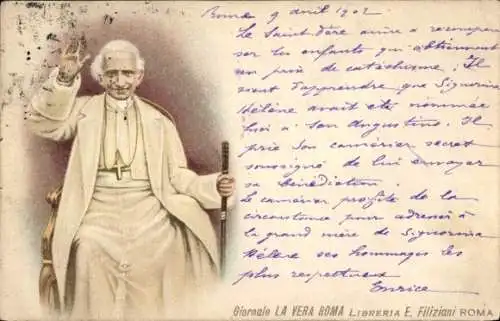 Roma 9 avril 1902
Le Saint Père aime a recompen
ser les enfants qui obtiennent
un prix de catéchisme; Il
vient d'apprendre que Signorina
Hélène avait été nommée
lui a San Augustino. Il
prie son camérier secret
soussigné de lui envoyer
sa bénédiction.
Le camérier profite de la
circonstance pour adresser à
la grand mère de Signorina
Hélène ses hommages les
plus respectueux
Enrico
Giornale LA VERA ROMA LIBRERIA E. Filiziani ROMA